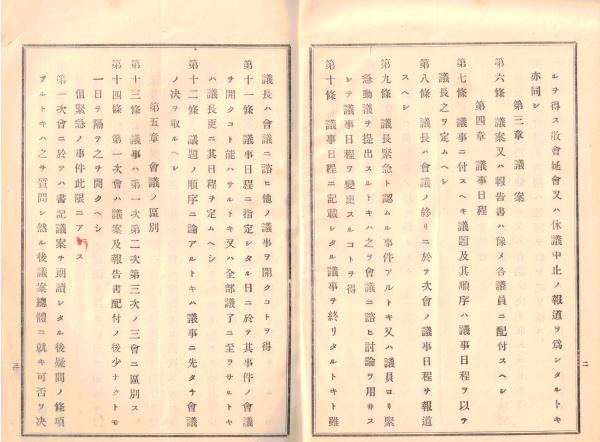 ルヲ得ス散會延會又ハ休議中止ノ報道ヲ爲シタルトキ
亦同シ
第三章 議案
第六條 議案又ハ報告書ハ豫メ各議員ニ配付スヘシ
第四章 議事日程
第七條 議事ニ付スヘキ議題及其順序ハ議事日程ヲ以テ
議長之ヲ定ムヘシ
第八條 議長ハ會議ノ終リニ於テ次會ノ議事日程ヲ報道
スヘシ
第九條 議長緊急ト認ムル事件アルトキ又ハ議員ヨリ緊
急動議ヲ提出スルトキハ之ヲ會議ニ諮ヒ討論ヲ用井ス
シテ議事日程ヲ變更スルコトヲ得
第十條 議事日程ニ記載シタル議事ヲ終リタルトキト雖
二
議長ハ會議ニ諮ヒ他ノ議事ヲ開クコトヲ得
第十一條 議事日程ニ指定シタル日ニ於テ其事件ノ會議
ヲ開クコト能ハサルトキ又ハ全部議了ニ至ラサルトキ
ハ議長更ニ其日程ヲ定ムヘシ
第十二條 議題ノ順序ニ論アルトキハ議事ニ先タチ會議
ノ决ヲ取ルヘシ
第五章 會議ノ區別
第十三條 議事ハ第一次第二次第三次ノ三會ニ區別ス
第十四條 第一次會ハ議案及報告書配付ノ後少ナクトモ
一日ヲ隔テ之ヲ開クヘシ
但緊急ノ事件此限ニアラス
第一次會ニ於テハ書記議案ヲ朗讀シタル後疑問ノ條項
アルトキハ之ヲ質問シ然ル後議案總體ニ就キ可否ヲ决
三